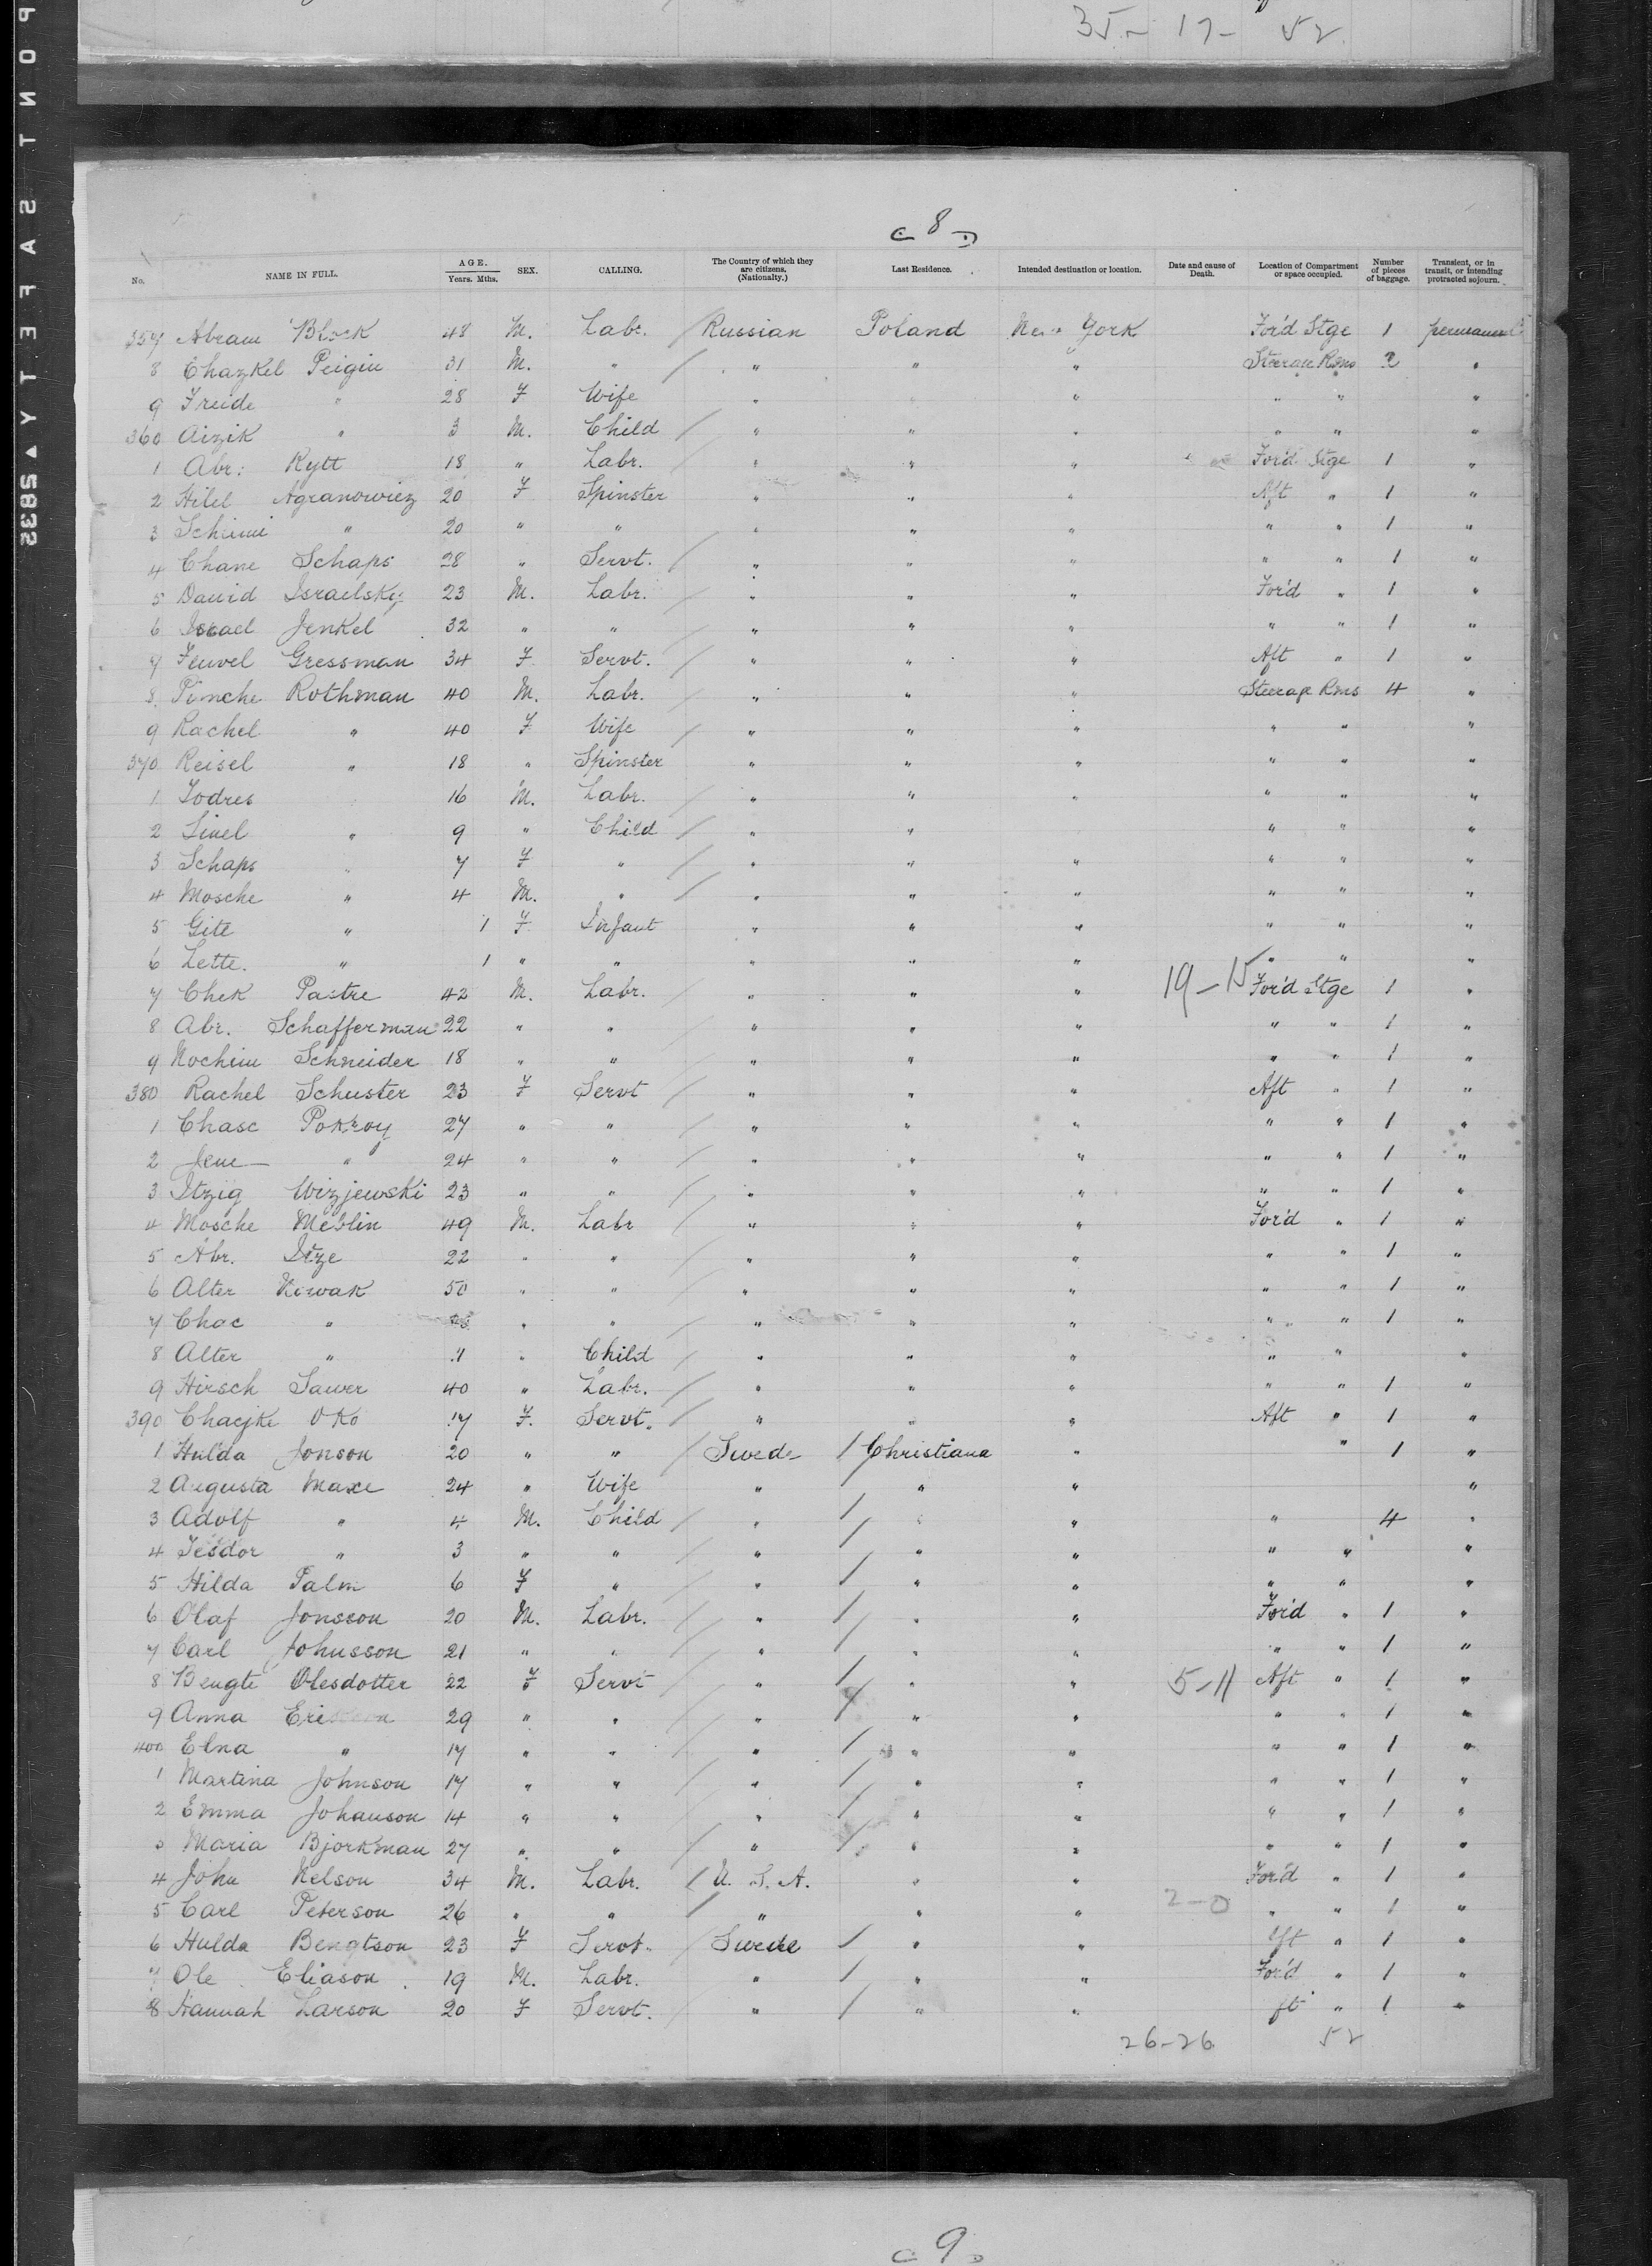 35 - 17 - 52
PONT SAFETY ▲ 5832
8
No. NAME IN FULL. AGE. Years. Mths. SEX. CALLING. The Country of which they are citizens, (Nationalty.) Last Residence. Intended destination or location. Date and cause of Death. Location of Compartment or space occupied. Number of pieces of baggage. Transient, or in transit, or intending protracted sojourn.
357 Abram Block 48 M. Labr. Russian Poland New York For'd Stge 1 permanent
8 Chazkel Peigin 31 M. " / " " " Steerage Rms 2 "
9 Freide " 28 F Wife " " " " " "
360 Aizik " 3 M. Child / " " " " " "
1 Abr: Rytt 18 " Labr. " " " For'd Stge 1 "
2 Hilel Agranowicz 20 F Spinster " " " Aft " 1 "
3 Schimi " 20 " " " " " " " 1 "
4 Chane Schaps 28 " Servt. / " " " " " 1 "
5 David Israelsky 23 M. Labr. / " " " For'd " 1 "
6 Israel Jenkel 32 " " / " " " " " 1 "
7 Feuvel Gressman 34 F Servt. / " " " Aft " 1 "
8 Pinche Rothman 40 M. Labr. / " " " Steerage Rms 4 "
9 Rachel " 40 F Wife / " " " " " "
370 Reisel " 18 " Spinster " " " " " "
1 Jodres 16 M. Labr. / " " " " " "
2 Sinel " 9 " Child / " " " " "
3 Schaps " 7 F " / " " " " " "
4 Mosche " 4 M. " / " " " " " "
5 Gite " 1 F Infant " " " " " "
6 Lette. " 1 " " " " " " " "
7 Chek Pastre 42 M. Labr. / " " " 19 - 15 For'd Stge 1 "
8 Abr. Schafferman 22 " " / " " " " " 1 "
9 Nochim Schneider 18 " " / " " " " " 1 "
380 Rachel Schuster 23 F Servt / " " " Aft " 1 "
1 Chase Pokroy 27 " " / " " " " " 1 "
2 Jene " 24 " " / " " " " " 1 "
3 Itzig Wizjewski 23 " " / " " " " " 1 "
4 Mosche Meblin 49 M. Labr / " " " For'd " 1 "
5 Abr. Itze 22 " " / " " " " " 1 "
6 Alter Nowak 50 " " / " " " " " 1 "
7 Chac " " " / " " " " " 1 "
8 Alter " " Child / " " " " " "
9 Hirsch Sawer 40 " Labr. / " " " " " 1 "
390 Chacjke Oko 17 F. Servt. / " " " Aft " 1 "
1 Hulda Jonson 20 " " / Swede / Christiana " " 1 "
2 Augusta Maxe 24 " Wife " " " "
3 Adolf " 4 M. Child / " / " " " 4 "
4 Tesdor " 3 " " / " / " " " " "
5 Hilda Palm 6 F " / " / " " " " "
6 Olaf Jonsson 20 M. Labr. / " / " " For'd " 1 "
7 Carl Johnsson 21 " " / " / " " " " 1 "
8 Bengte Olesdotter 22 F Servt / " / " " 5 - 11 Aft " 1 "
9 Anna 29 " " / " / " " " " 1 "
400 Elna " 17 " " / " / " " " " 1 "
1 Martina Johnson 17 " " / " / " " " " 1 "
2 Emma Johanson 14 " " / " / " " " " 1 "
3 Maria Bjorkman 27 " " / " / " " " " 1 "
4 John Nelson 34 M. Labr. / U. S. A. " " For'd " 1 "
5 Carl Peterson 26 " " / " " " 2 - 0 " " 1 "
6 Hulda Bengtson 23 F Servt. / Swede / " " Aft " 1 "
7 Ole Eliason 19 M. Labr. " / " " For'd " 1 "
8 Hannah Larson 20 F Servt. " / " " ft " 1 "
26 - 26 52
9